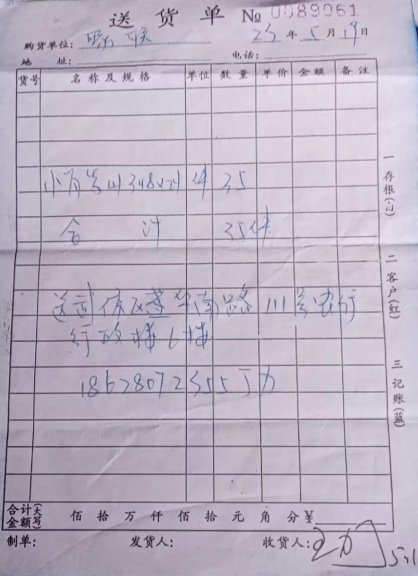 送货单 № 0089061
购货单位: 23年5月19日
地 址: 电话:
货号 名称及规格 单位 数量 单价 金额 备注
件 35
合 计 35件
送武侯区 南路111号农行
行政楼6楼
18628072355丁力
合计(大写)金额 佰拾万仟佰拾元角分¥
制单: 发货人: 收货人:
一存根(白) 二客户(红) 三记账(蓝)